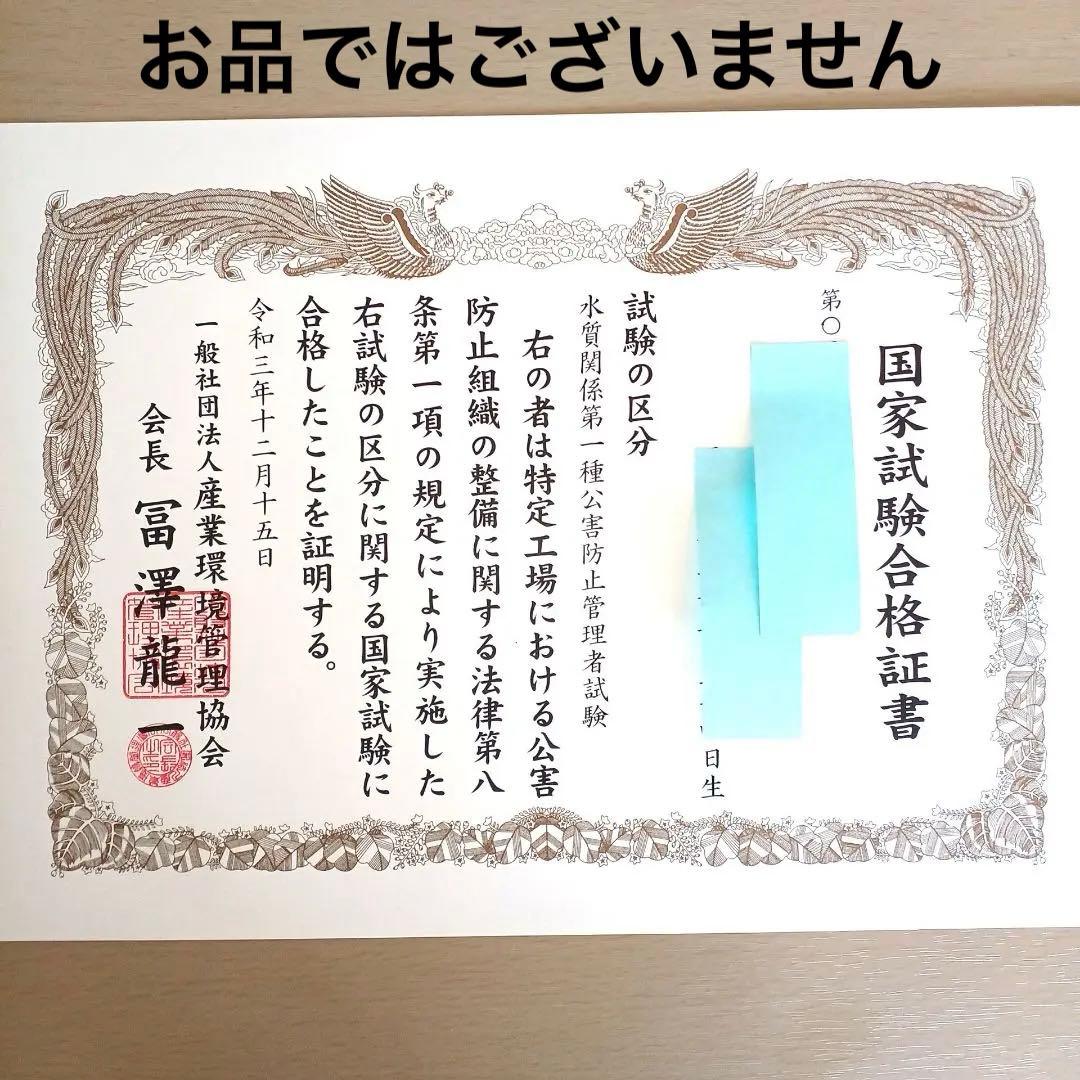 お品ではございません
国家試験合格証書
第〇
日生
試験の区分
水質関係第一種公害防止管理者試験
右の者は特定工場における公害
防止組織の整備に関する法律第八
条第一項の規定により実施した
右試験の区分に関する国家試験に
合格したことを証明する。
令和三年十二月十五日
一般社団法人産業環境管理協会
会長 冨澤龍一